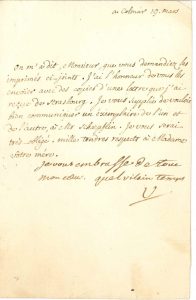 a Colmar 19 mars
on m'a dit, Monsieur que vous demandiez les
imprimés ci joints. J'ai l'honneur de vous les
envoier avec des copies d'une lettre que j'ai
reçue de Strasbourg. Je vous supplie de vouloir
bien communiquer un exemplaire de l'un et
de l'autre, à Mr Schepflin. Je vous serai
très obligé. mille tendres respects à Madame
votre mère.
je vous embrasse de tout
mon cœur. quel vilain temps
V